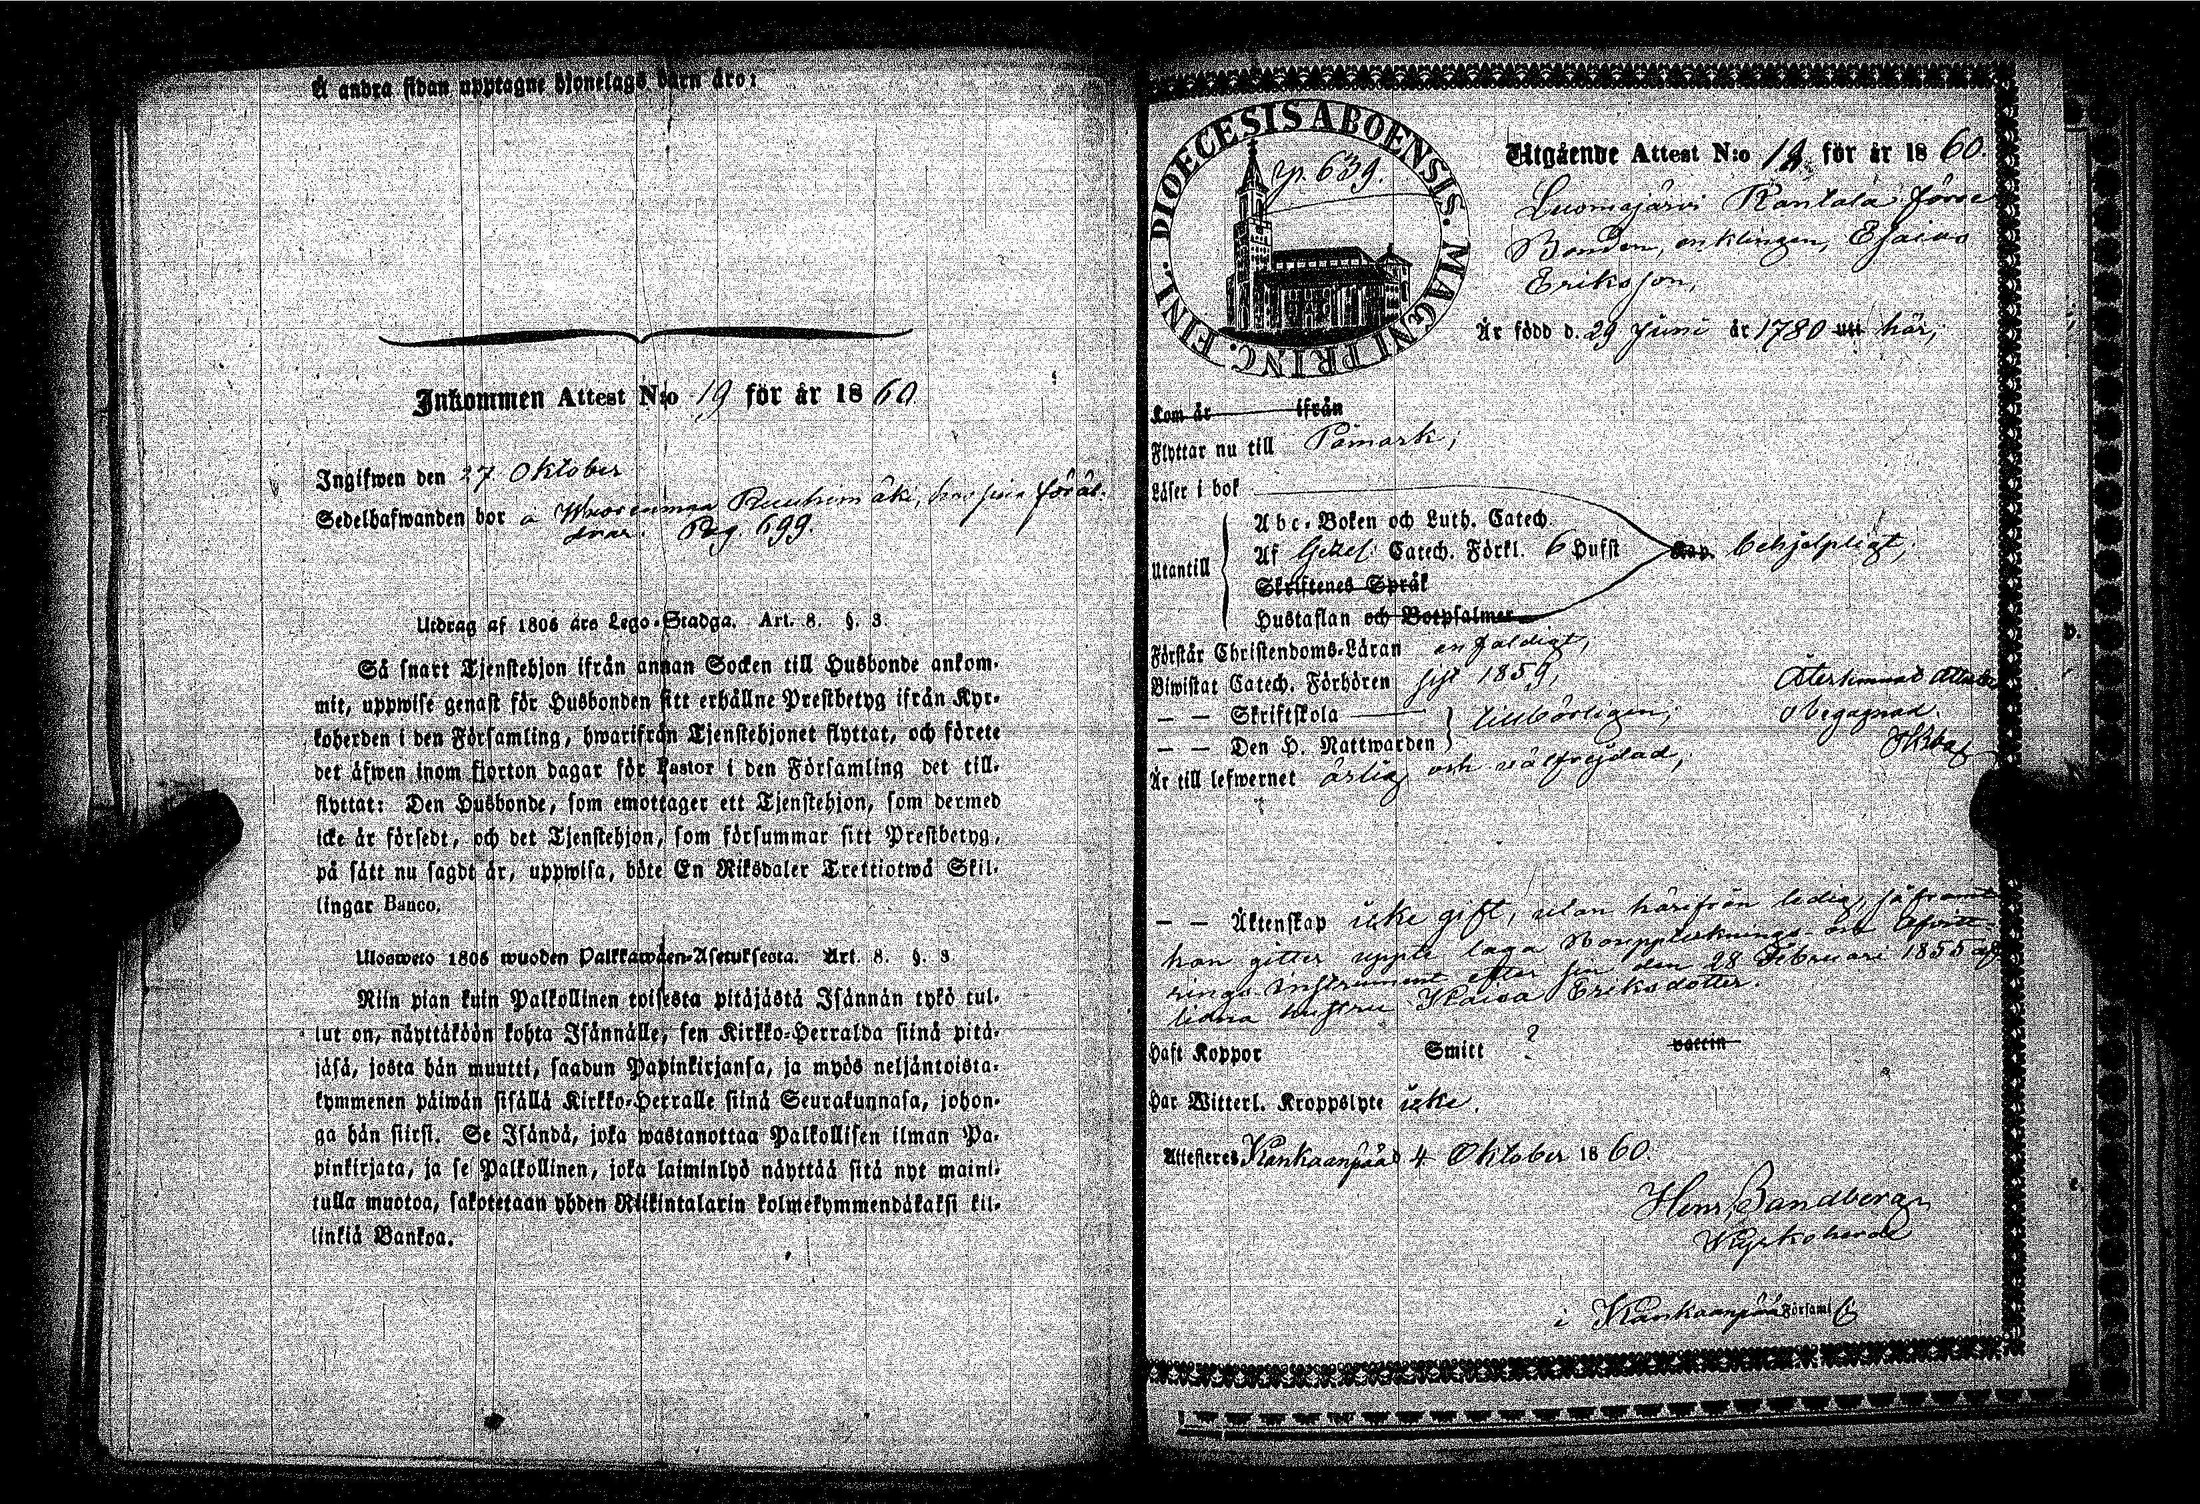 Å andra sidan upptagne hjonelags barn äro:
Inkommen Attest N:o 19 för år 1860
Ingifwen den 27 Oktober
Sedelhafwanden bor å Ruuhimäki, hos sina föräl-
drar. Pag. 699.
Utdrag af 1805 års Lego-Stadga. Art. 8. §. 3.
Så snart Tjenstehjon ifrån annan Socken till Husbonde ankom-
mit, uppwise genast för Husbonden sitt erhållne Prestbetyg ifrån Kyr-
koherden i den Församling, hwarifrån Tjenstehjonet flyttat, och förete
det äfwen inom fjorton dagar för Pastor i den Församling det till-
flyttat: Den Husbonde, som emottager ett Tjenstehjon, som dermed
icke är försedt, och det Tjenstehjon, som försummar sitt Prestbetyg,
på sätt nu sagdt är, uppwisa, böte En Riksdaler Trettiotwå Skil-
lingar Banco.
Ulosweto 1805 wuoden Palkkawäen-Asetuksesta. Art. 8. §. 3.
Niin pian kuin Palkollinen toisesta pitäjästä Isännän tykö tul-
lut on, näyttäköön kohta Isännälle, sen Kirkko-Herralda siinä pitä-
jäsä, josta hän muutti, saadun Papinkirjansa, ja myös neljäntoista-
kymmenen päiwän sisällä Kirkko-Herralle siinä Seurakunnasa, johon-
ga hän siirsi. Se Isändä, joka wastanottaa Palkollisen ilman Pa-
pinkirjata, ja se Palkollinen, joka laiminlyö näyttää sitä nyt maini-
tulla muotoa, sakotetaan yhden Riikintalarin kolmekymmendäkaksi kil-
linkiä Bankoa.
DIOECESIS ABOENSIS. MAGNI PRINC. FINL.
p. 639.
Utgående Attest N:o 12 för år 1860.
Luomajärvi Rantala förre
Bonden, enklingen, Esaias
Eriksson,
Är född d. 29 Juni år 1780 uti här,
Kom år ifrån
Flyttar nu till Påmark;
Läser i bok
Utantill
Abc-Boken och Luth. Catech.
Af Gezel. Catech. Förkl. 6 Hufst Kap. behjelpligt;
Skriftenes Språk
Hustaflan och Botpsalmer
Förstår Christendoms-Läran enfaldigt;
Biwistat Catech. Förhören sist 1859,
— — Skriftskola
— — Den H. Nattwarden tillbörligen;
Återkommit Attest
obegagnad.
Är till lefwernet ärlig och välfrejdad;
— — Äktenskap icke gift, utan härifrån ledig, såframt
han gitter uppte laga Bouppteknings- och Afvitt-
rings-instrument efter sin den 28 Februari 1855 af-
lidna hustru Kaisa Eriksdotter.
Haft Koppor Smitt ? vaccin
Har Witterl. Kroppslyte icke.
Attesteres Kankaanpää d 4 Oktober 1860.
Henr. Sandberg
Kyrkoherde
i Kankaanpää Församl